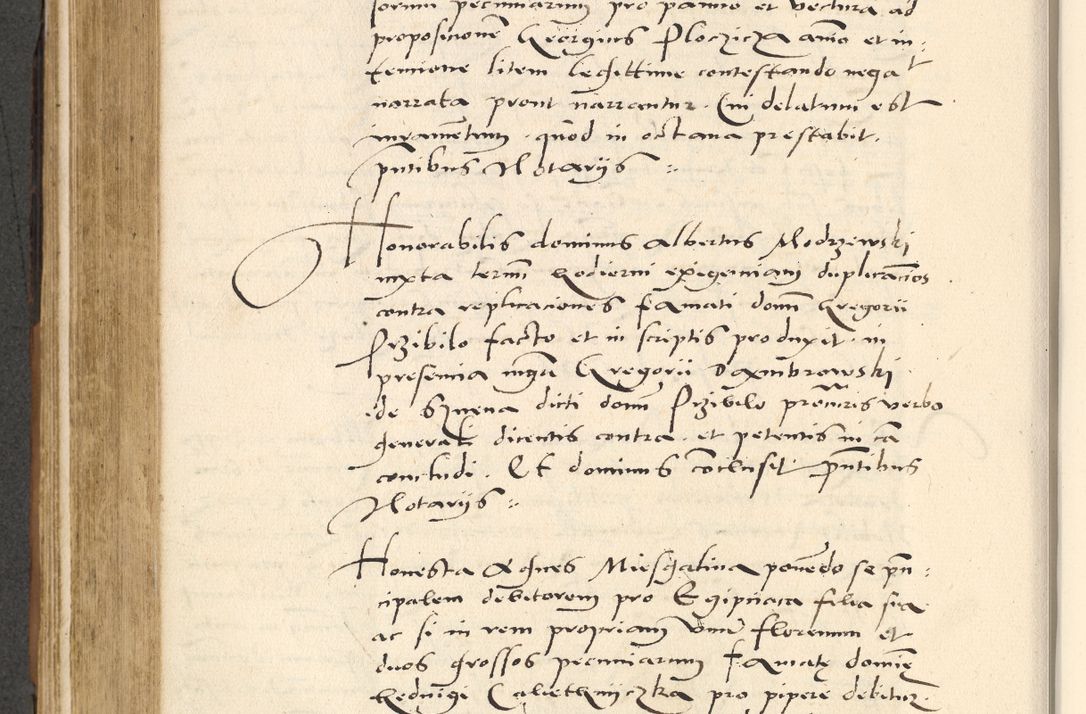 somm pecuniarum pro panno et vectura ad
propositionē Georgius Ploczicza animo et in:
tentione litem legittime contestando negat
narrata prout narrantur. Cui delatum est
iuramentum. quod in octava prestabit.
pntibus Notarijs :.
Honorabilis dominus Albertus Modrzewski
iuxta termī hodierni exigenciam duplicaciōs
contra replicaciones famati domī Gregorii
Przibilo facto et in scriptis produxit. in
presencia mgri Gregorii Dambrowski
de Sznena dicti domī Przibilo procūris verbo
generali dicentis contra. et petentis in cā
concludi. Et dominus cōclusit pntibus
Notarijs :.
Honesta Agnes Miesgalina ponēdo se prin:
cipalem debitorem pro Egipciaca filia sua
ac si in rem propriam unū florenum et
duos grossos pecuniarum famatę dominę
Hedwigi Caliethniczka pro pipere debitur.